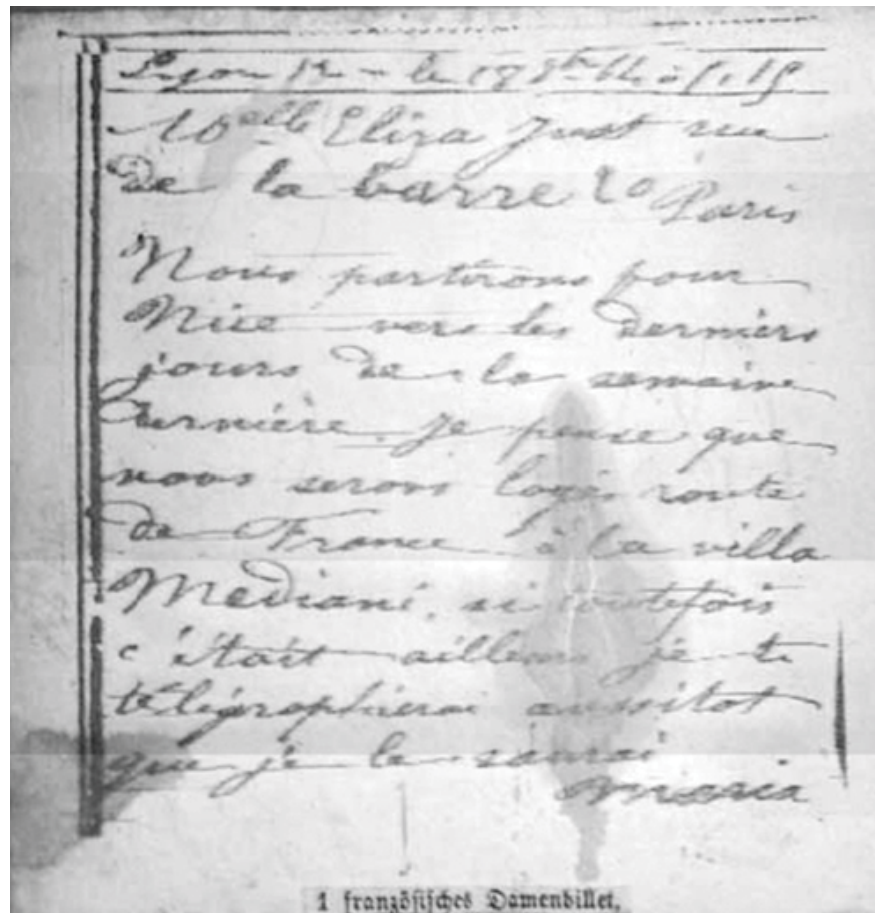 Lyon 12 - le 18 à 5.15
Melle Eliza Just rue
de la barre 20 Paris
Nous partirons pour
Nice vers les derniers
jours de la semaine
dernière. Je pense que
nous serons logés route
de France à la villa
Mediani, si toutefois
c'était ailleurs je te
télégraphierai aussitot
que je le saurai
Maria
1 französisches Damenbillet,